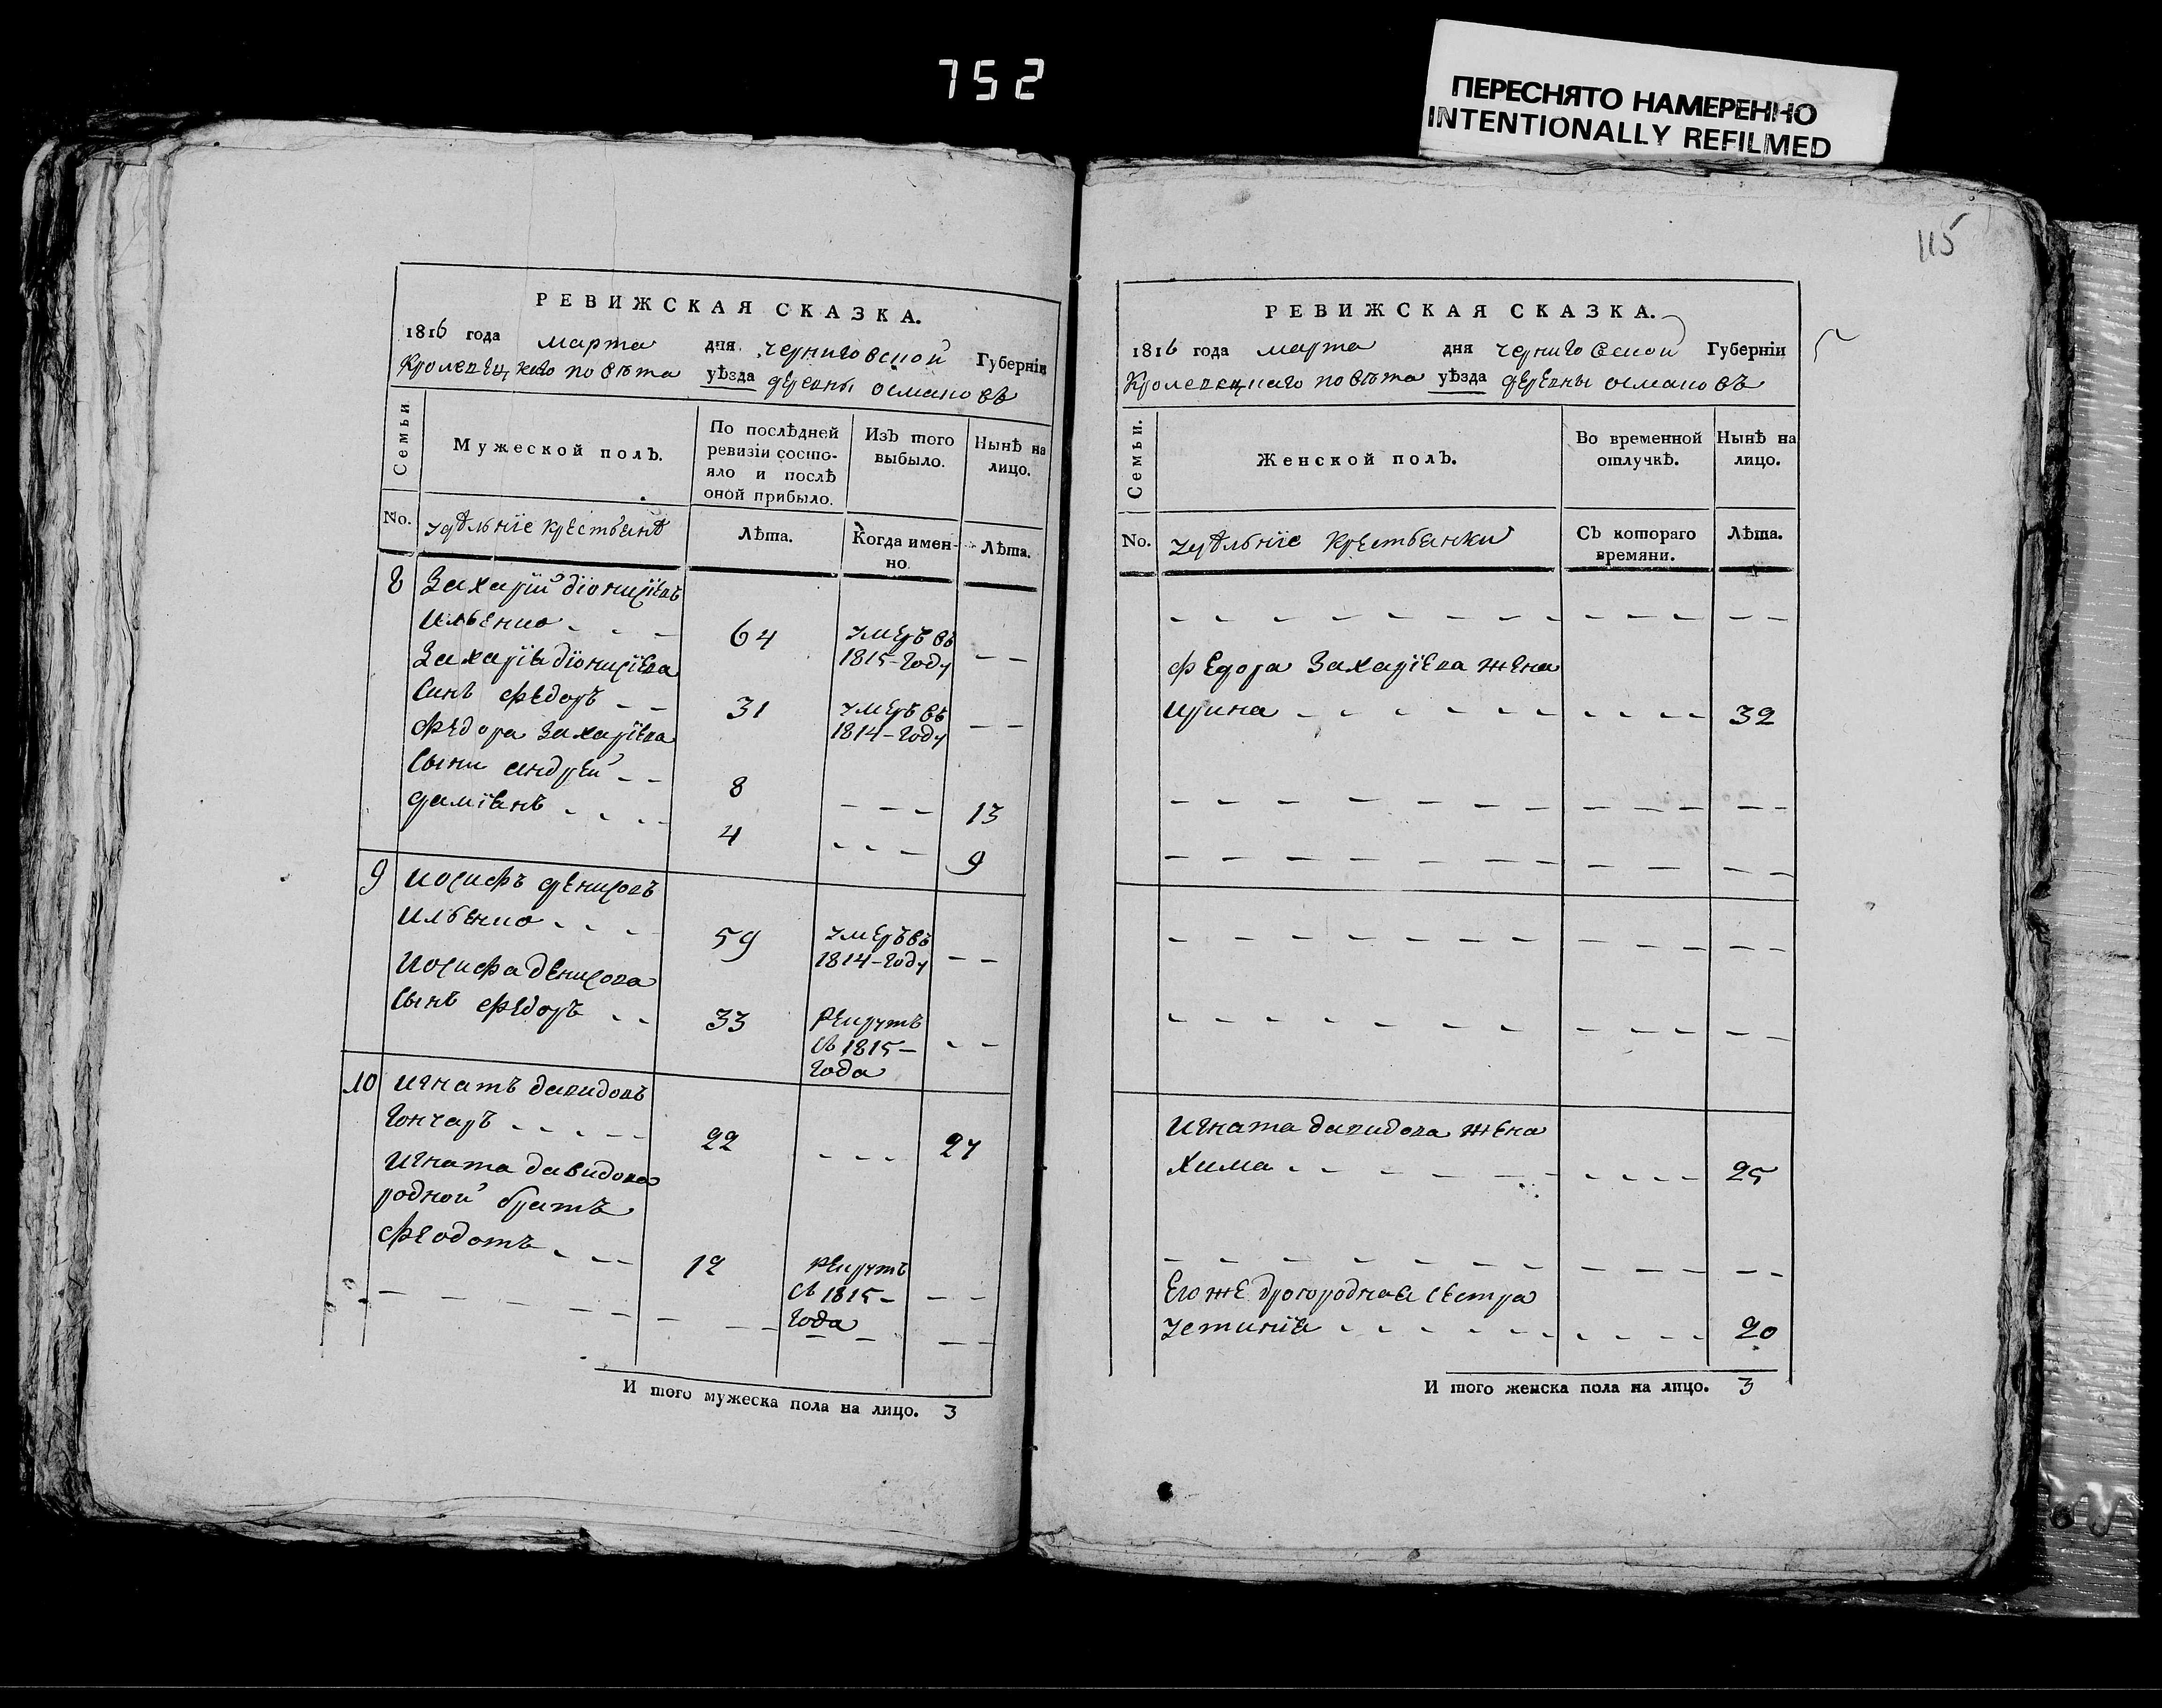 752
ПЕРЕСНЯТО НАМЕРЕННО
INTENTIONALLY REFILMED
РЕВИЖСКАЯ СКАЗКА.
1816 года марта дня черниговской Губерніи
Кролевецкого повѣта уѣзда деревни османовъ
Семьи
Мужеской полъ.
По послѣдней ревизіи состояло и послѣ оной прибыло.
Изъ того выбыло.
Нынѣ на лицо.
No. удѣльніе крестьянѣ
Лѣта.
Когда именно.
Лѣта.
8 Захарій діонисіевъ
Ильенко - - - 64 умеръ въ
1815-году - -
Захарія діонисіева
Синъ Федоръ - - 31 умеръ въ
1814-году - -
Федора Захаріева
Сыни андрей - - 8 - - - 13
даміянъ - - - - 4 - - - 9
9 Иосифъ денисовъ
Ильенко - - - 59 умеръ въ
1814-году - -
Иосифа денисова
Сынъ Федоръ - - 33 рекрутъ
съ 1815-
года - -
10 Игнатъ давидовъ
Гончаръ - - - - - 22 - - - - 27
Игната давидова
родной братъ
Феодотъ - - - 12 рекрутъ
съ 1815-
года - -
И того мужеска пола на лицо. 3
115
РЕВИЖСКАЯ СКАЗКА.
1816 года марта дня черниговской Губерніи
Кролевецкаго повѣта уѣзда деревни османовъ
Семьи.
Женской полъ.
Во временной отлучкѣ.
Нынѣ на лицо.
No. удѣльніе крестьянки
Съ котораго времяни.
Лѣта.
Федора Захаріева жена
ирина - - - - - - - - - - - 32
Игната давидова жена
Хима - - - - - - - - - - 25
Его же двоюродная сестра
устинія - - - - - - - - - - 20
И того женска пола на лицо. 3